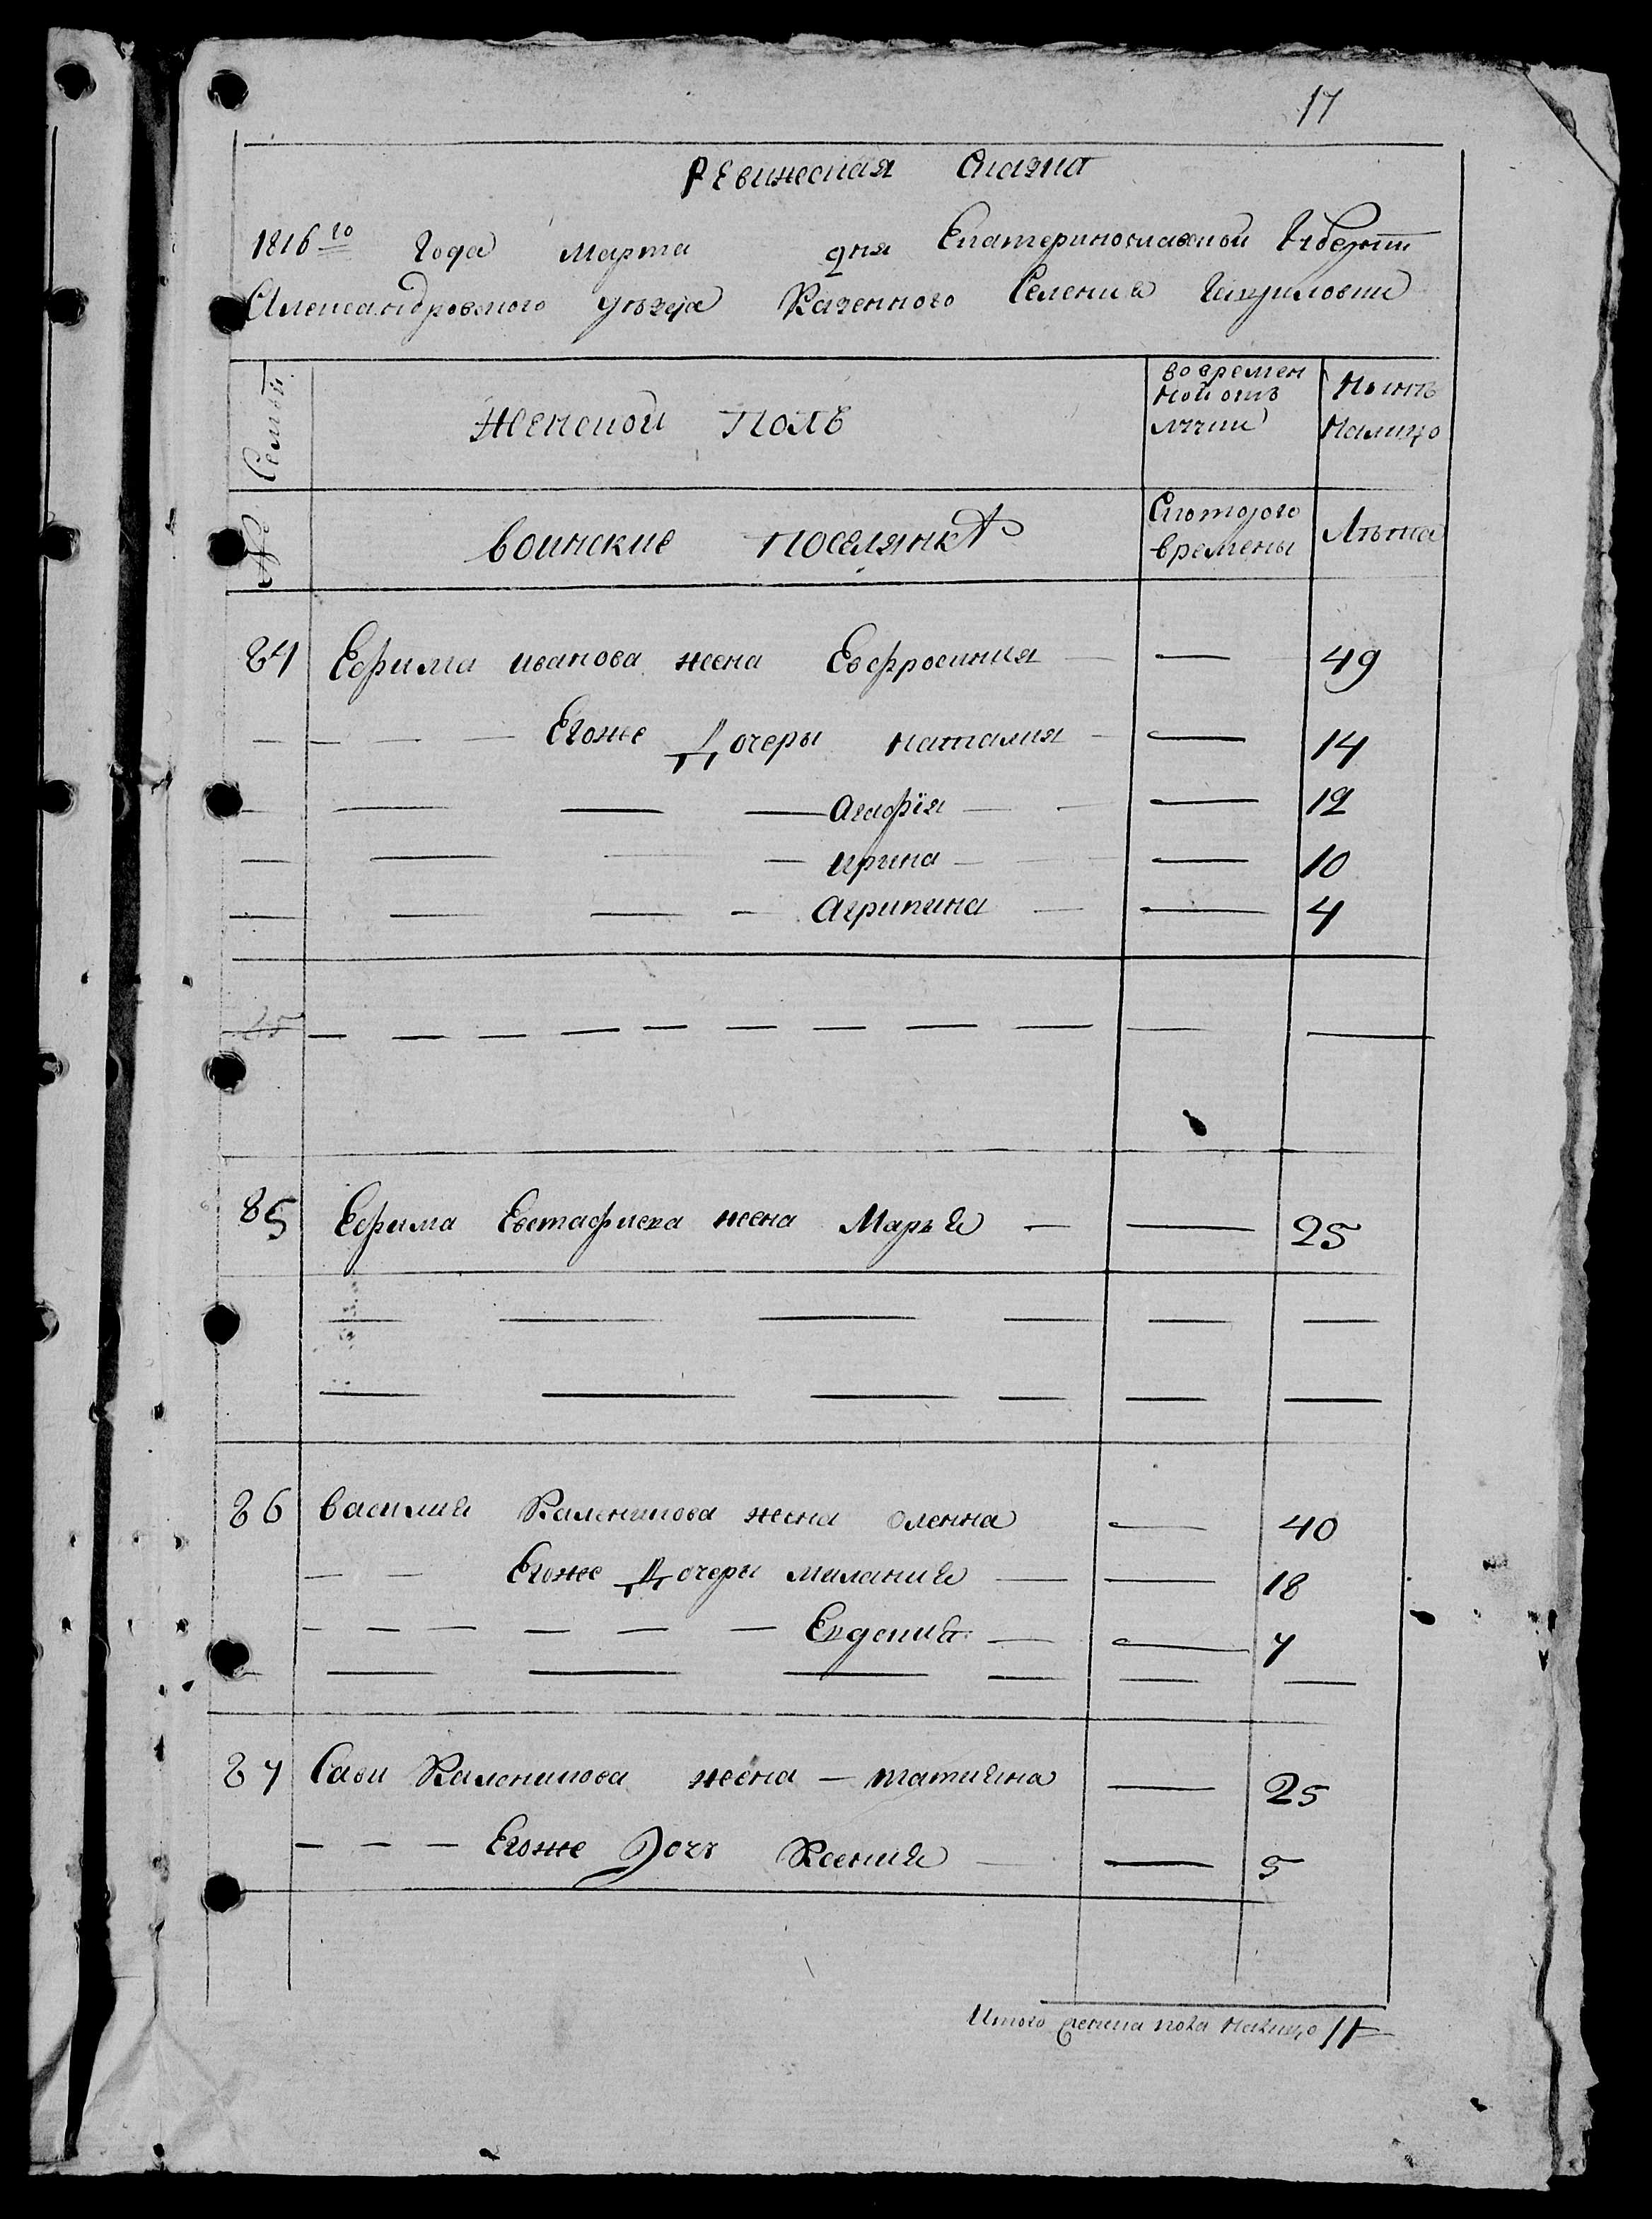 17
Ревижская Сказка
1816го Года Марта дня Екатеринославской Губернии
Александровского уезда Казенного Селения
Семьи
№
Женской Полъ
во времен
ной отъ
лучки
Ныне
Налицо
воинские поселянкА
С которого
времены
Лѣта
84 Ефима иванова жена Евфросиния — — 49
— — — Егоже Дочеры наталия — — 14
— — — — Агафїя — — — 12
— — — — ирина — — — 10
— — — — Агрипина — — 4
85 Ефима Евстафиева жена Марья — — 25
86 Василия Каленикова жена Оленна — 40
— — Егоже Дочери милания — — 18
— — — — — — Евдокия — — 7
87 Сави Каленикова жена — татияна — 25
— — — Егоже Дочь Ксения — — 5
Итого женска пола налицо 11